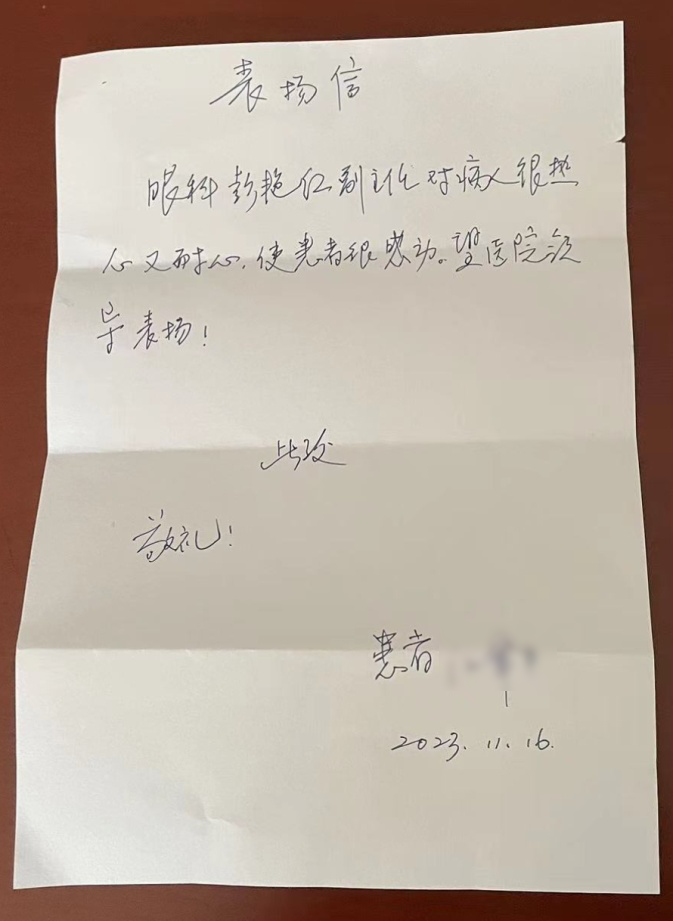 表扬信
眼科彭艳红副主任对病人很热
心又耐心,使患者很感动。望医院领
导表扬!
此致
敬礼!
患者
2023.11.16.